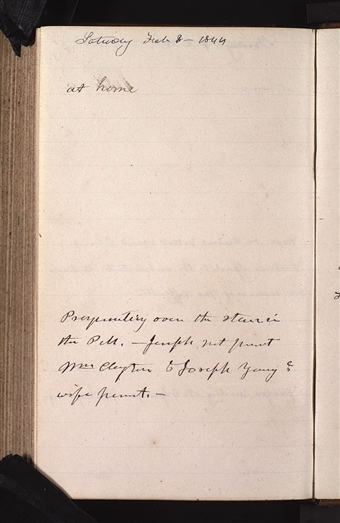 Saturday Feb 3 - 1844
at home
Prayermeeting over the store in
the P.M. — Joseph not present
Mrs Clayton & Joseph Young &
wife present. —